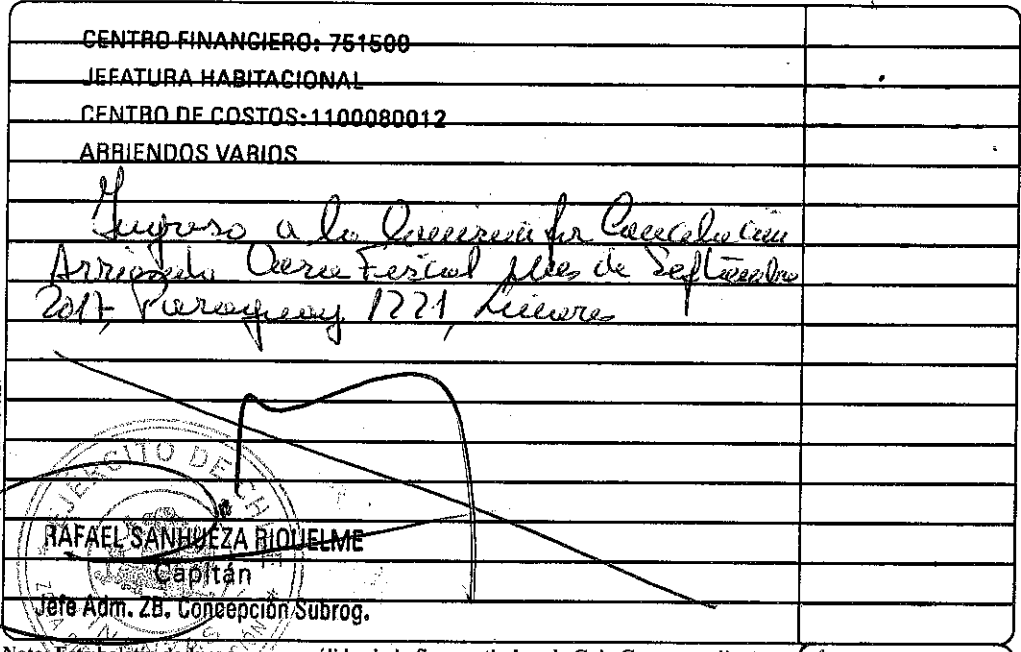 CENTRO FINANCIERO: 751500
JEFATURA HABITACIONAL
CENTRO DE COSTOS: 1100080012
ARRIENDOS VARIOS
Ingreso a la por Cancelación
Arriendo Casa Fiscal Mes de Septiembre
2017, Paraguay 1221, Linares
EJÉRCITO DE CHILE
RAFAEL SANHUEZA RIQUELME
Capitán
Jefe Adm. ZB. Concepción Subrog.
Nota: